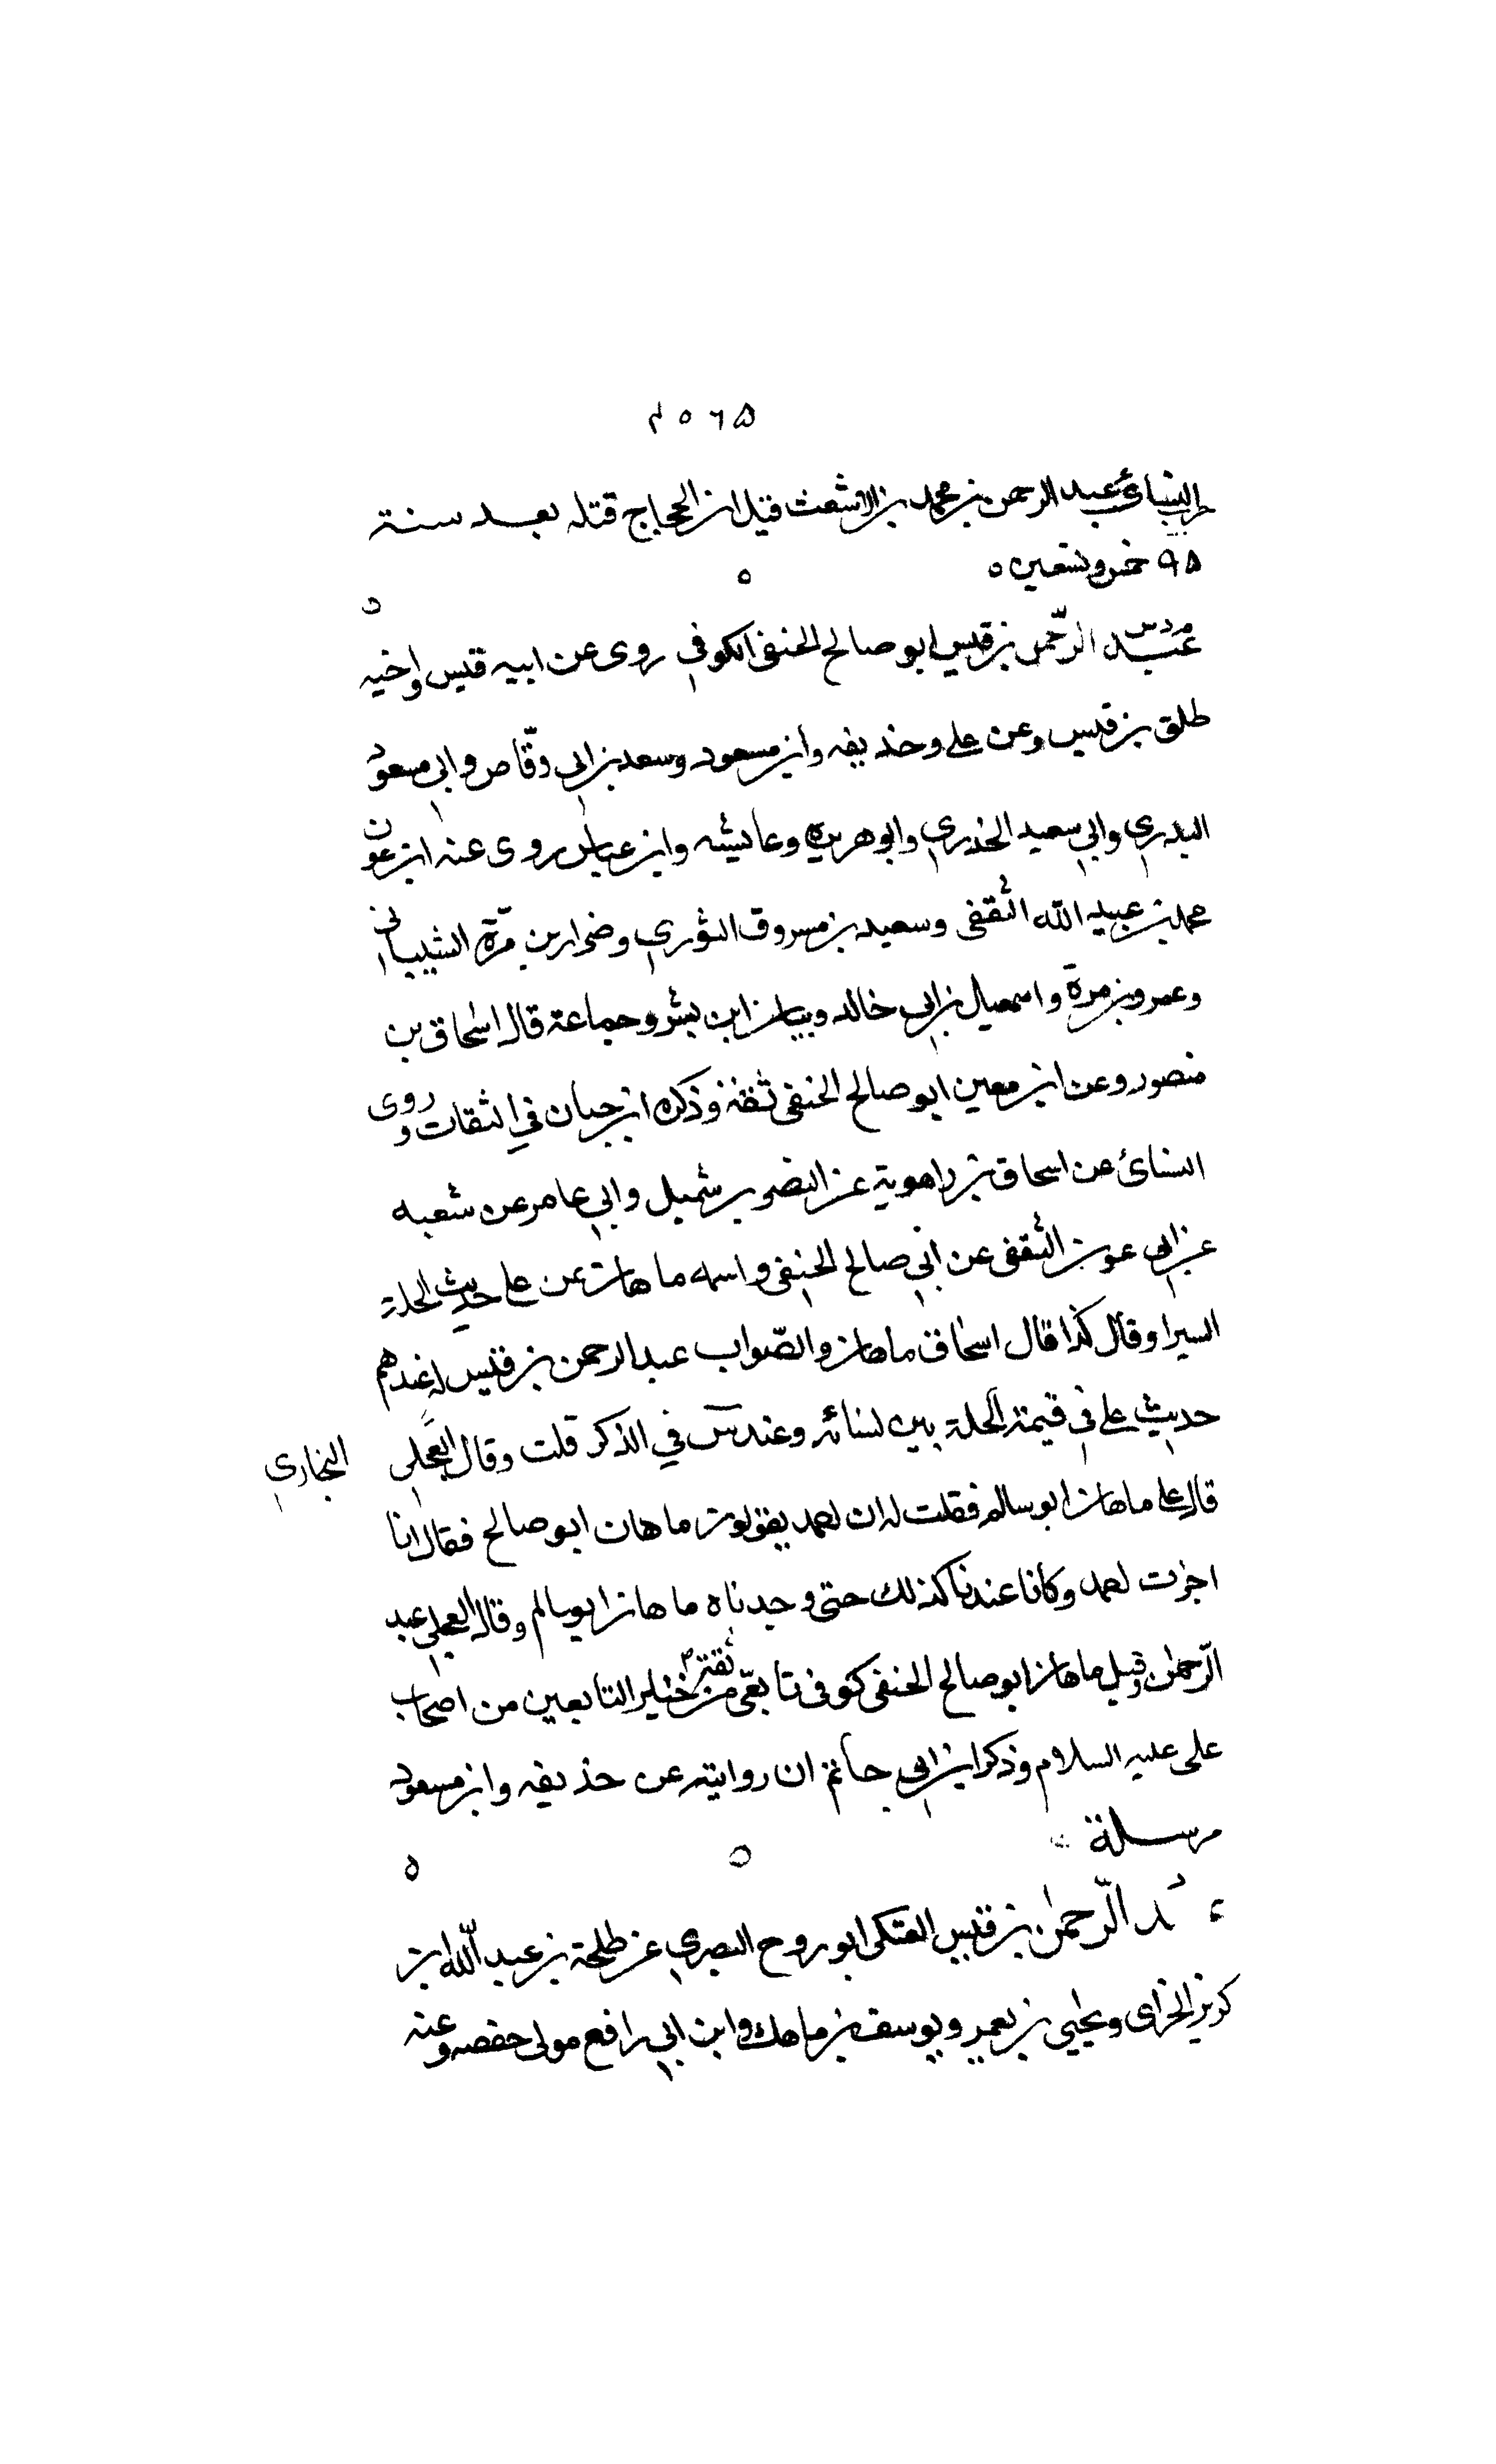 عبد الرحمن بن محمد بن الاشعث قيل ان الحجاج قتله بعد سنة
٩٥ خمس وتسعين ه
عبد الرّحمن بن قيس ابو صالح الحنفى الكوفي روى عن ابيه قيس واخيه
طلق بن قيس وعن على وحذيفه وابن مسعود وسعد بن ابى وقّاص وابي مسعود
البدري وابي سعيد الخدري وابو هريره وعائشه وابن عباس روى عنه ابن عون
محمد بن عبيد الله الثقفى وسعيد بن مسروق الثوري وضرار بن مرّة الشيباني
وعمرو بن مرة واسمعيل بن ابي خالد وبيان ابن بشر وجماعة قال اسحاق بن
منصور وعن ابن معين ابو صالح الحنفى ثقة وذكره ابن حبان في الثقات وروى
النسائ عن اسحاق بن راهوية عن النضر بن شميل وابي عامر عن شعبه
عن ابي عون الثقفى عن ابي صالح الحنفى واسمه ماهان عن على حديث الحلة
السيرا وقال كذا قال اسحاق ماهان والصّواب عبد الرحمن بن قيس له عندهم
حديث على في قيمة الحلة بين نسائه وعند س في الذكر قلت وقال العجلى
البخاري
قال على ماهان ابو سالم فقلت له ان احمد يقولون ماهان ابو صالح فقال انا
اخبرت احمد وكانا عندنا كذلك حتى وجدناه ماهان ابو سالم وقال العجلى عبد
الرّحمن وقيل ماهان ابو صالح الحنفى كوفى تابعّى ثقة من خيار التابعين من اصحاب
على عليه السلام وذكر ابن ابي حاتم ان روايته عن حذيفه وابن مسعود
مرسلة
عبد الرّحمن بن قيس العتكى ابو روح البصري عن طلحة بن عبد الله ابن
كريز الخزاى ويحيى بن يعمر ويوسف بن ماهك وابن ابي رافع مولى حفصه وعنه